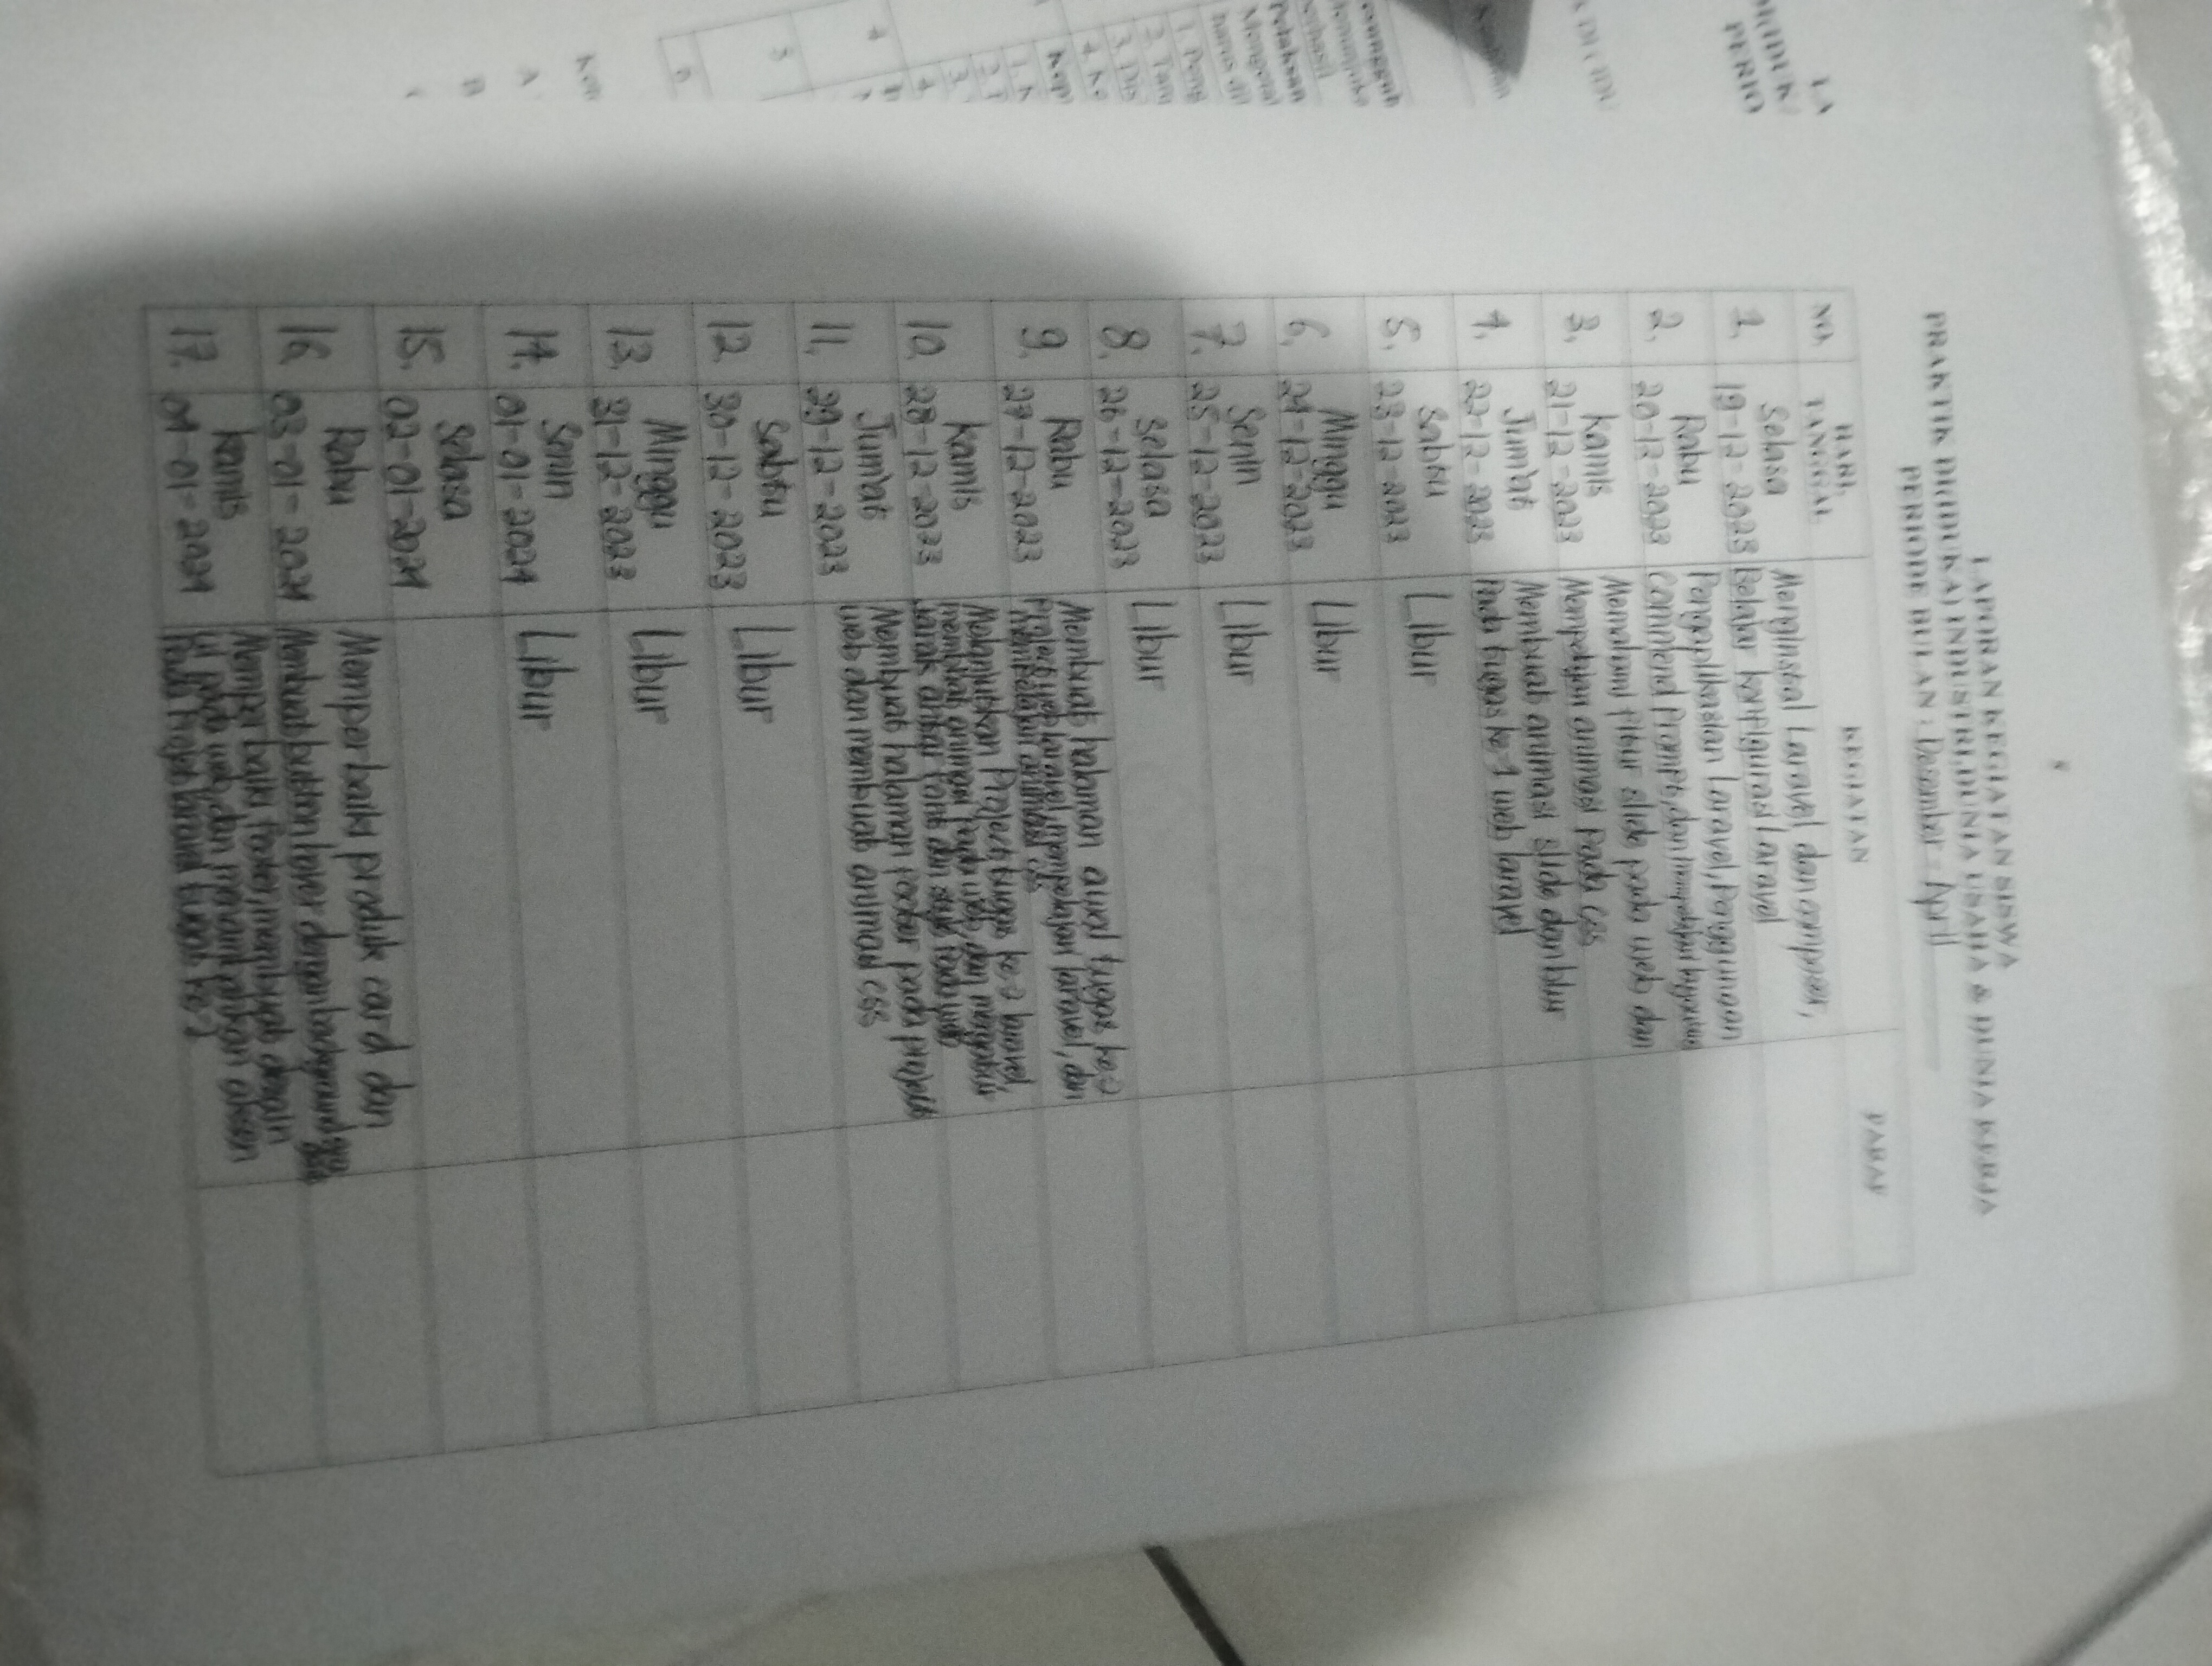 LAPORAN KEGIATAN SISWA
PRAKTIK DIGIDUKAJ INDUSTRI, DUNIA USAHA & DUNIA KERJA
PERIODE BULAN : Desember - April
NO. HARI, TANGGAL KEGIATAN PARAF
1. Selasa 19-12-2023 Menginstal Laravel dan composer,
Belajar konfigurasi laravel
2. Rabu 20-12-2023 Pengaplikasian Laravel, Penggunaan
Commend Prompt, dan
3. Kamis 21-12-2023 Memahami fitur slide pada web dan
Mempelajari animasi Pada css
4. Jum'at 22-12-2023 Membuat animasi slide dan blur
Pada tugas ke-1 web laravel
5. Sabtu 23-12-2023 Libur
6. Minggu 24-12-2023 Libur
7. Senin 25-12-2023 Libur
8. Selasa 26-12-2023 Libur
9. Rabu 27-12-2023 Membuat halaman awal tugas ke-2
Project web laravel, mempelajari laravel, dan
animasi css
10. Kamis 28-12-2023 Melanjutkan Project tugas ke-2 laravel,
membuat animasi pada web, dan mengatur
Jarak antar font dan style Pada web
11. Jum'at 29-12-2023 Membuat halaman footer pada project
web dan membuat animasi css
12. Sabtu 30-12-2023 Libur
13. Minggu 31-12-2023 Libur
14. Senin 01-01-2024 Libur
15. Selasa 02-01-2024
16. Rabu 03-01-2024 Memperbaiki produk card dan
Membuat button dengan
17. Kamis 04-01-2024 Memperbaiki footer, membuat
pada web, dan
Pada Project laravel tugas ke-2
LA
PERIO
Pelaksan
1. Peng
2. Tam
3. Dip
4. Ke
Kop
A
B